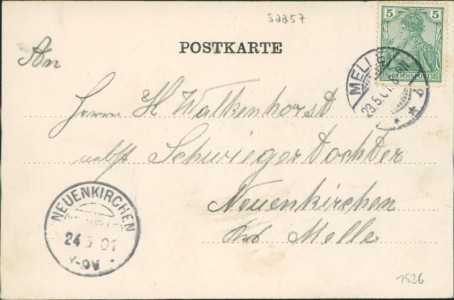 52257
5 5
POSTKARTE
An
MELLE
23.5.01
Herrn H Walkenhorst
nebst Schwieger Dochter
Neuenkirchen
Melle
NEUENKIRCHEN
24 5 01
1536